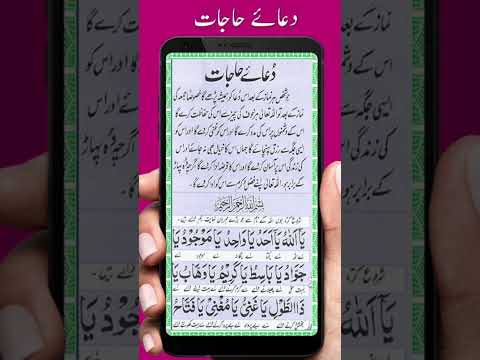 دعائے حاجات
دُعائے حاجات
جو شخص ہر نماز کے بعد اس دُعا کو ہمیشہ پڑھے گا خصوصاً جمعہ کی
نماز کے بعد تو اللہ تعالیٰ ہر خوف کی چیز سے اس کی حفاظت کرے گا
اس کے دشمنوں پر اس کی مدد کرے گا اور اس کو غنی کر دے گا اور اس کو
ایسی جگہ سے رزق پہنچائے گا جہاں اس کا خیال بھی نہ جائے اور اس
کی زندگی اس پر آسان کرے گا اور اس کا قرضہ ادا کرے گا اگرچہ وہ پہاڑ
کے برابر ہو، اللہ تعالیٰ اپنے فضل و کرم سے اس کو ادا کر دے گا۔
بِسْمِ اللهِ الرَّحْمٰنِ الرَّحِيْمِ
يَآ اَللهُ يَآ اَحَدُ يَا وَاحِدُ يَا مَوْجُوْدُ يَا
جَوَّادُ يَا بَاسِطُ يَا كَرِيْمُ يَا وَهَّابُ يَا
ذَا الطَّوْلِ يَا غَنِيُّ يَا مُغْنِيْ يَا فَتَّاحُ